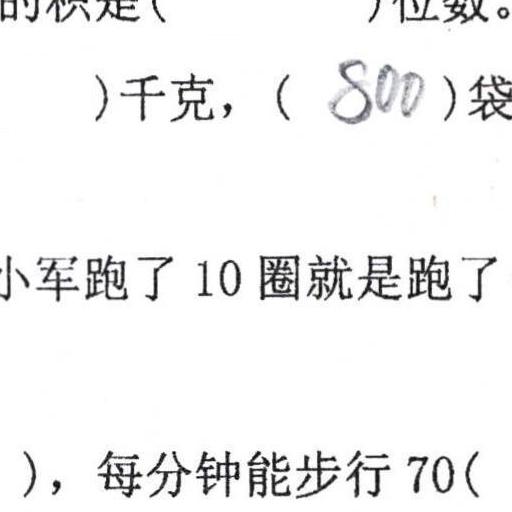 的积是(        )位数。
)千克，( 800 )袋
小军跑了 10 圈就是跑了
)，每分钟能步行 70(